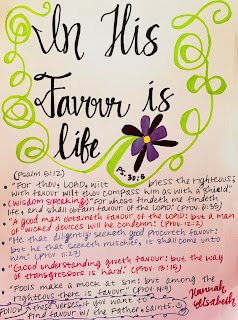 In His
Favour is
life
Ps. 30:5
(Psalm 5:12)
• "For thou, LORD, wilt bless the righteous;
with favour wilt thou compass him as with a shield."
• (Wisdom speaking) "For whoso findeth me findeth
life, and shall obtain favour of the LORD." (Prov. 8:35)
• "A good man obtaineth favour of the LORD: but a man
of wicked devices will he condemn." (Prov. 12:2)
• "He that diligently seeketh good procureth favour:
but he that seeketh mischief, it shall come unto
him." (Prov. 11:27)
• "Good understanding giveth favour: but the way
of transgressors is hard." (Prov. 13:15)
• "Fools make a mock at sin: but among the
righteous there is favour." (Prov. 14:9)
Follow these verses if you want to
find favour w/ the Father & saints.
Hannah
Elisabeth